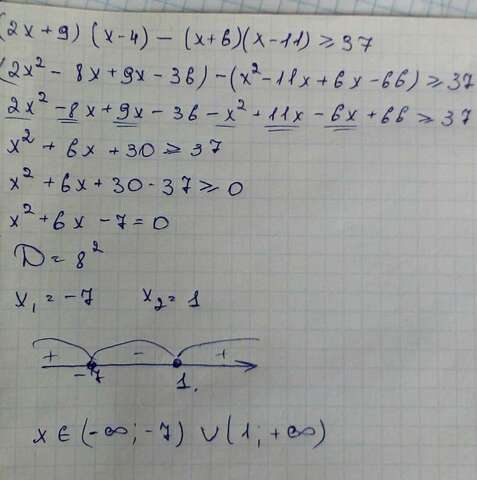 (2x+9)(x-4)-(x+6)(x-11)⩾37
(2x²-8x+9x-36)-(x²-11x+6x-66)⩾37
2x²-8x+9x-36-x²+11x-6x+66⩾37
x²+6x+30⩾37
x²+6x+30-37⩾0
x²+6x-7=0
D=8²
x₁=-7 x₂=1
+ - +
-7 1.
x∈(-∞;-7)∪(1;+∞)